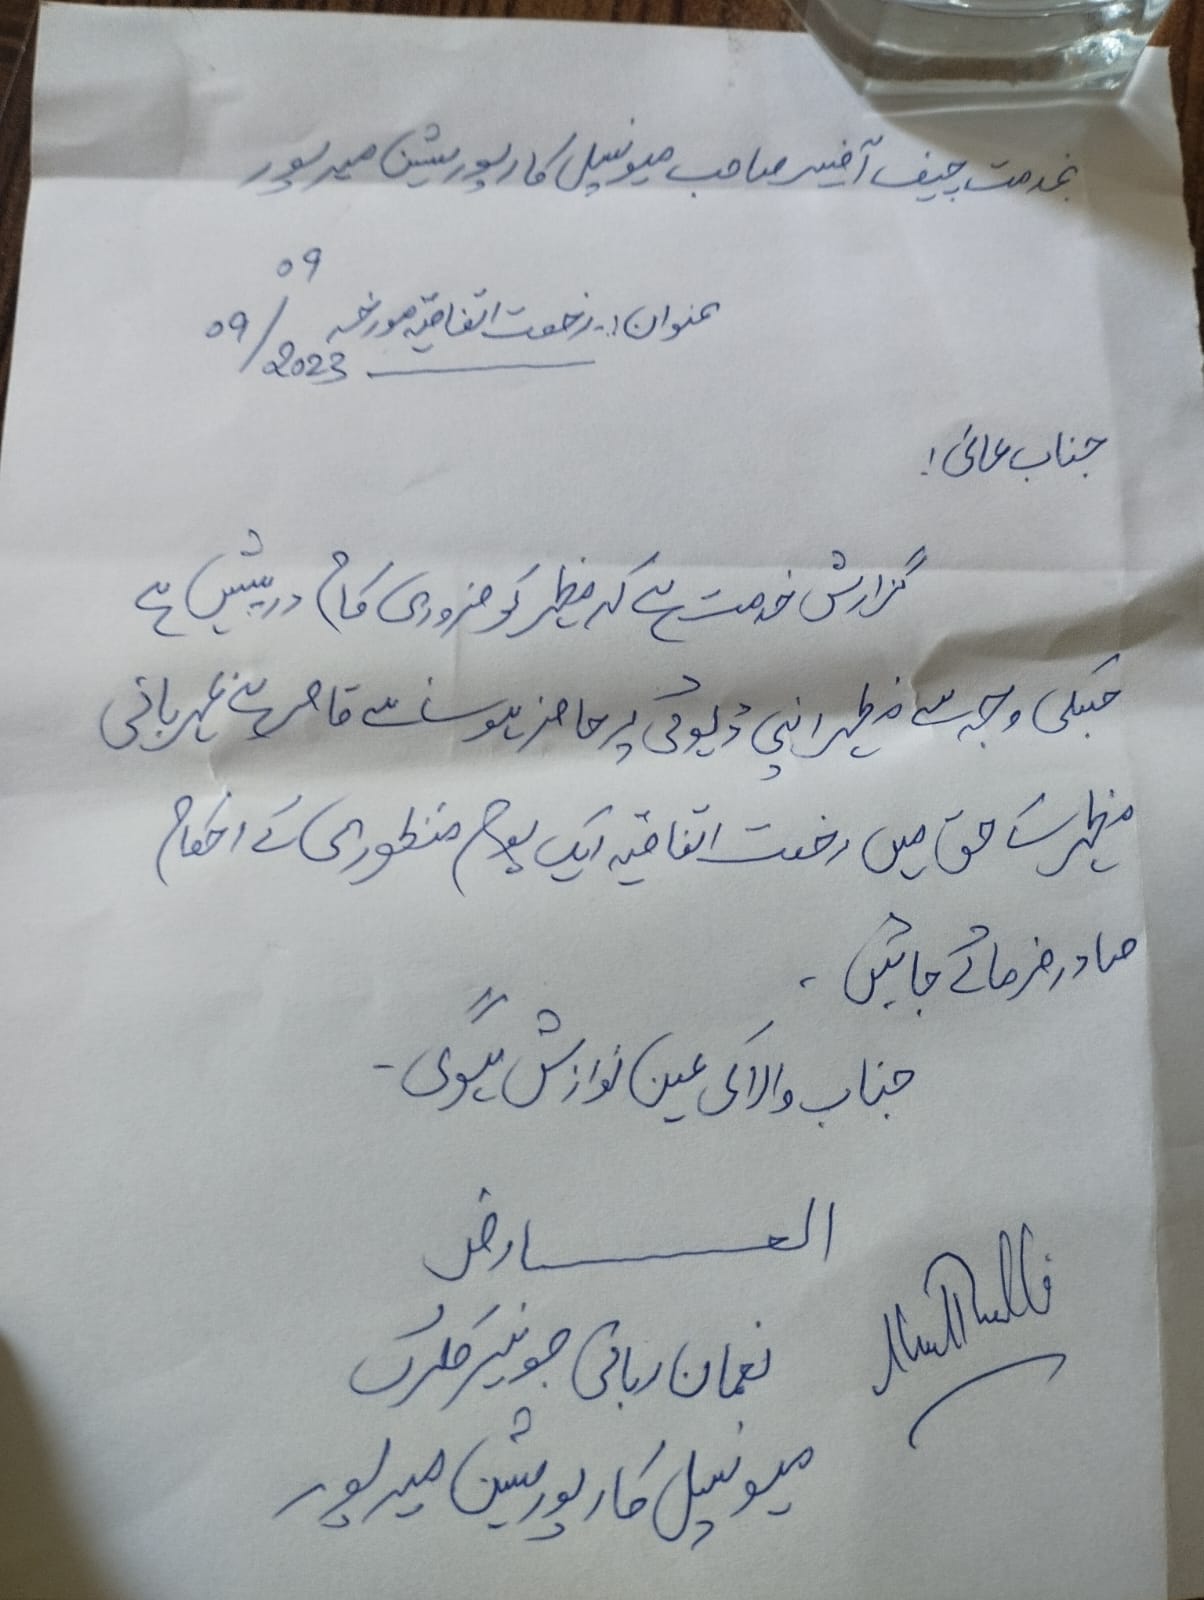 بخدمت چیف آفیسر صاحب میونسپل کارپوریشن میرپور
عنوان:۔ رخصت اتفاقیہ مورخہ 09/09/2023
جناب عالی!
گزارش خدمت ہے کہ مظہر کو ضروری کام درپیش ہے
جسکی وجہ سے مظہر اپنی ڈیوٹی پر حاضر ہونے سے قاصر ہے مہربانی
مظہر کے حق میں رخصت اتفاقیہ ایک یوم منظوری کے احکام
صادر فرمائے جائیں ۔
جناب والا کی عین نوازش ہوگی ۔
العارض
نعمان ربانی جونیئر کلرک
میونسپل کارپوریشن میرپور